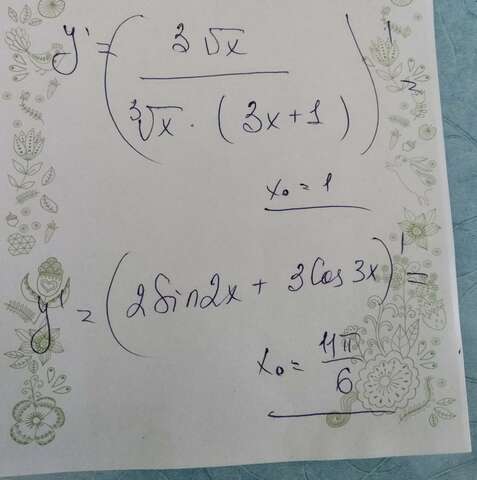 y' = (3√x / ∛x · (3x+1))' =
x₀ = 1
y' = (2Sin2x + 3Cos3x)' =
x₀ = 11π/6